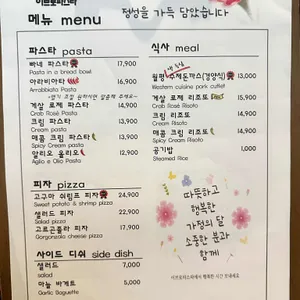 메뉴 menu
정성을 가득 담았습니다
파스타 pasta
빠네 파스타 17,900
Pasta in a bread bowl
아라비아따 16,900
Arrabbiata Pasta
게살 로제 파스타 14,900
Crab Rosé Pasta
크림 파스타 13,900
Cream pasta
매콤 크림 파스타 14,900
Spicy Cream Pasta
알리오 올리오 12,900
Aglio e Olio Pasta
피자 pizza
고구마 쉬림프 피자 24,900
Sweet potato & shrimp pizza
샐러드 피자 22,900
Salad pizza
고르곤졸라 피자 17,900
Gorgonzola cheese pizza
사이드 디쉬 side dish
샐러드 7,000
salad
마늘 바게트 5,000
Garlic Baguette
식사 meal
수제돈까스(경양식) 13,000
Western cuisine pork cutlet
게살 로제 리조또 15,900
Crab Rosé Risoto
크림 리조또 14,900
Cream Risoto
매콤 크림 리조또 15,900
Spicy Cream Risoto
공기밥 1,000
Steamed Rice
따뜻하고
행복한
가정의 달
소중한 분과
함께